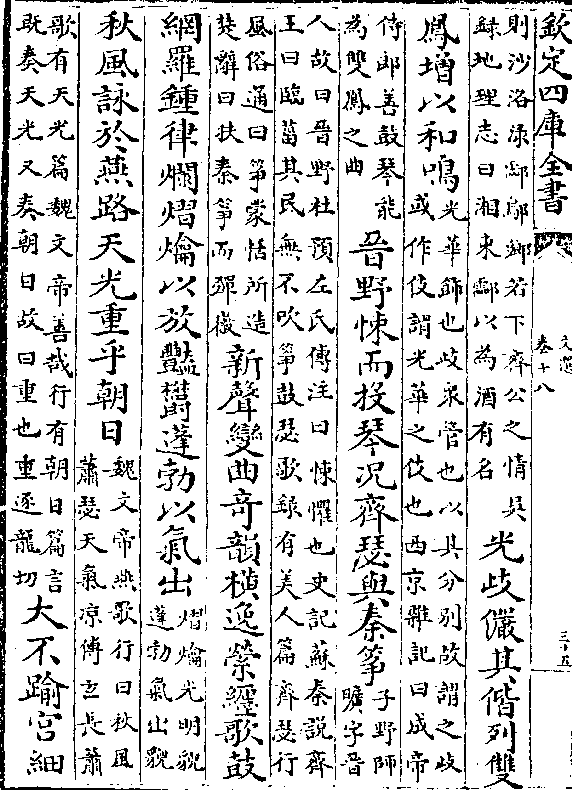 欽定四庫全書
文選
卷十八
三十五
則沙洛渌酃鄉若下齊公之情吳
録地理志曰湘東酃以為酒有名
光歧儼其偕列雙
鳳增以和鳴
光華飾也歧衆管也以其分别故謂之歧
或作伎謂光華之伎也西京雜記曰成帝
侍郎善鼓琴能
為雙鳳之曲
晉野悚而投琴况齊瑟與秦筝
子野師
曠字晉
人故曰晉野杜預左氏傳注曰悚懼也史記蘇秦說齊
王曰臨菑其民無不吹筝鼓瑟歌録有美人篇齊瑟行
風俗通曰筝蒙恬所造
楚辭曰扶秦筝而彈徽
新聲變曲奇韻橫逸縈纒歌鼓
網羅鍾律爛熠爚以放豔欝蓬勃以氣出
熠爚光明貌
蓬勃氣出貌
秋風詠於燕路天光重乎朝日
魏文帝燕歌行曰秋風
蕭瑟天氣凉傅玄長蕭
歌有天光篇魏文帝善哉行有朝日篇言
既奏天光又奏朝日故曰重也重逐龍切
大不踰宫細